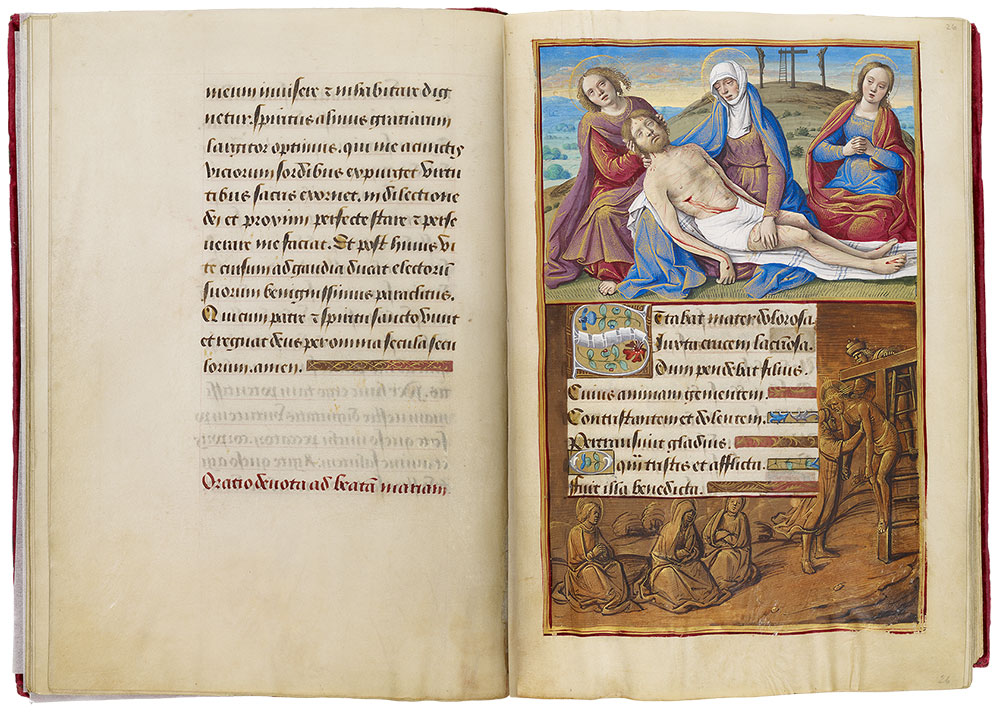 meum inuisere ⁊ inhabitare dig
netur. spiritus almus gratiarum
largitor optimus. qui me a cunctis
viciorum sordibus expurget virtu
tibus sacris exornet. in dilectione
dei et proximi perfecte stare ⁊ perse
uerare me faciat. Et post huius vi
te cursum ad gaudia ducat electorū
suorum benignissimus paraclitus.
Qui cum patre ⁊ spiritu sancto viuit
et regnat deus per omnia secula secu
lorum. amen.
Oratio deuota ad beatā mariam
26
Stabat mater dolorosa
Iuxta crucem lacrimosa.
Dum pendebat filius.
Cuius animam gementem.
Contristantem et dolentem.
Pertransiuit gladius.
O quam tristis et afflicta.
Fuit illa benedicta.
26